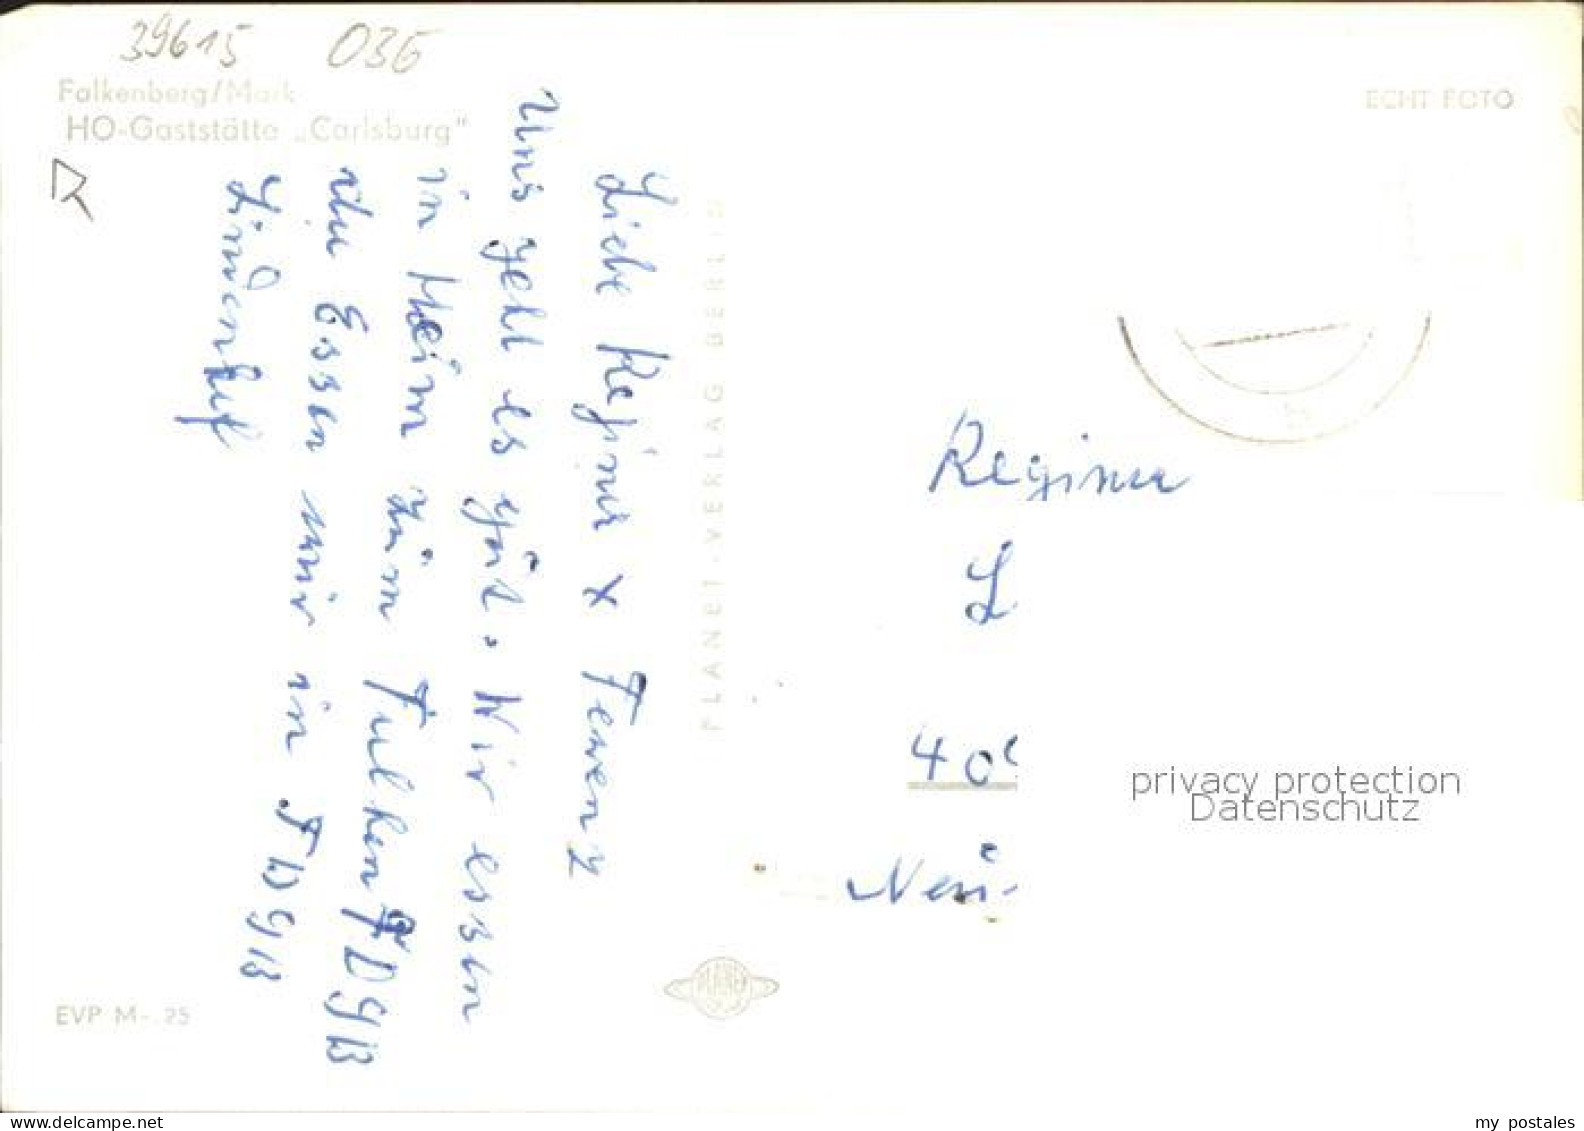 39615 036
Falkenberg/Mark
HO-Gaststätte „Carlsburg"
ECHT FOTO
Liebe Regina x
Uns geht es gut. Wir essen
in Heim zum
die Essen wir in FDGB
Lindenhof
PLANET-VERLAG BERLIN
Regina
L
40
Neu-
privacy protection
Datenschutz
PLANET
EVP M-.25
my postales
www.delcampe.net